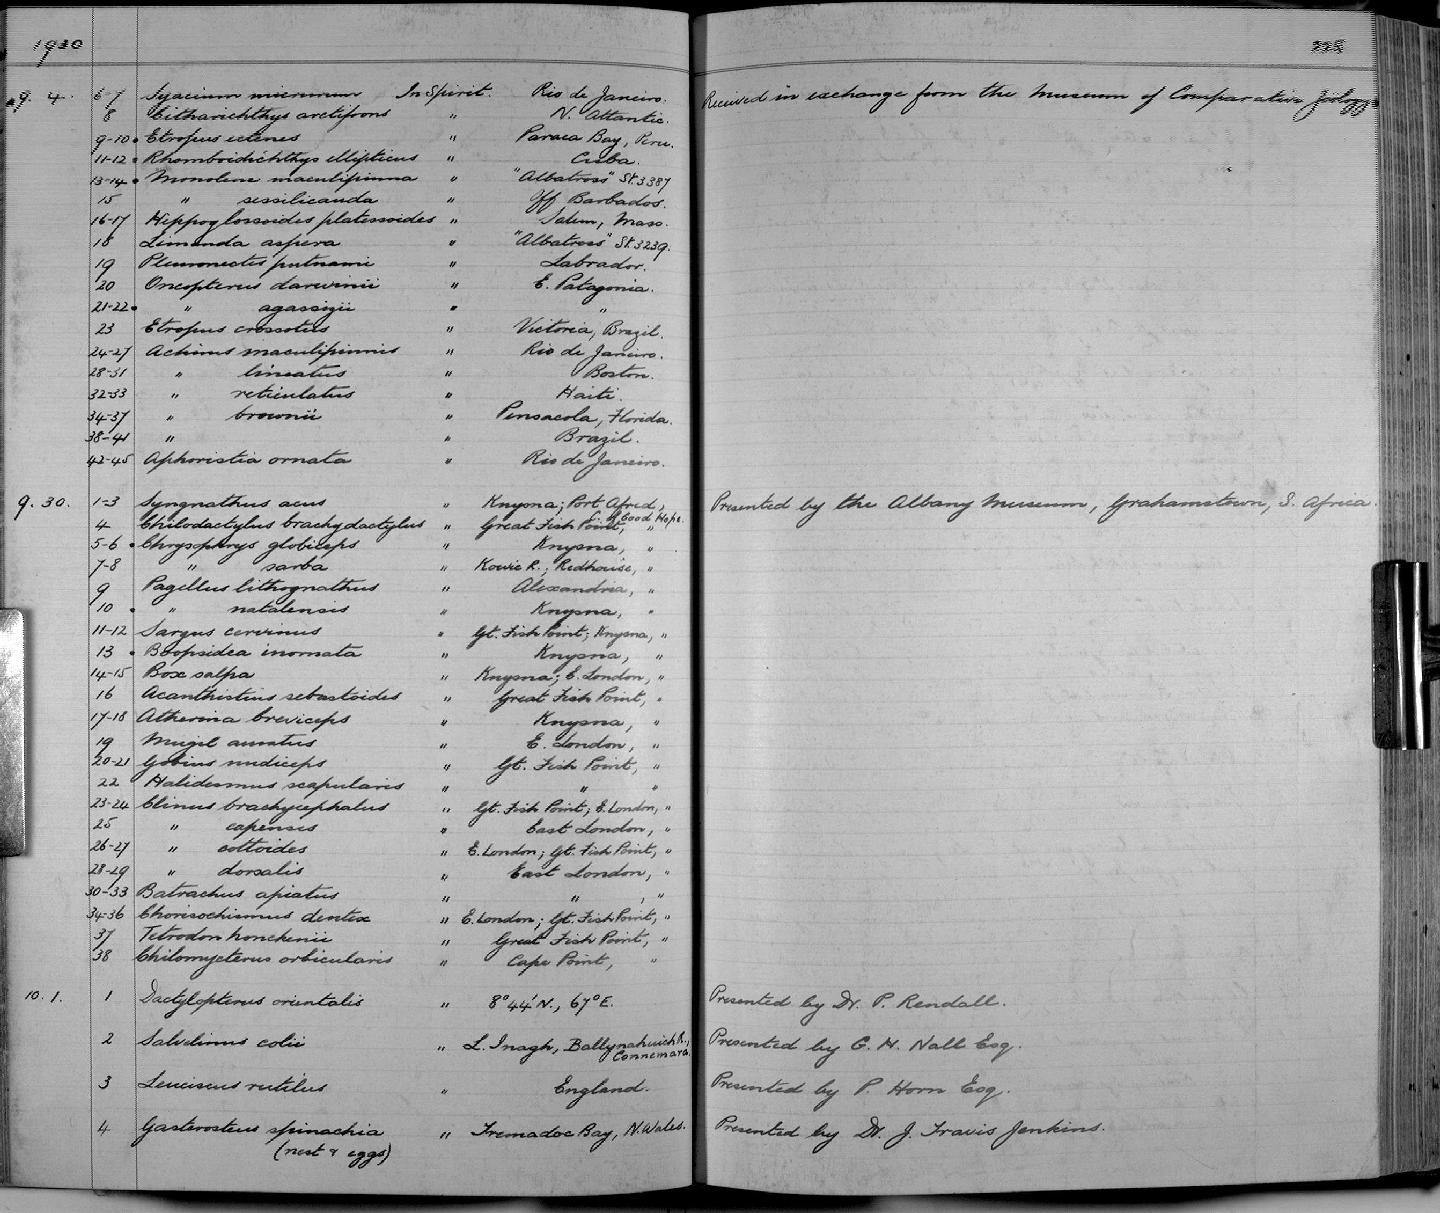 1930
9. 4. 6-7 Syacium micrurum In Spirit. Rio de Janeiro. Received in exchange from the Museum of Comparative Zoology
8 Citharichthys arctifrons " N. Atlantic.
9-10 Etropus ectenes " Paraca Bay, Peru.
11-12 Rhomboidichthys ellipticus " Cuba.
13-14 Monolene maculipinna " "Albatross" St. 3387
15 " sessilicauda " Off Barbados.
16-17 Hippoglossoides platessoides " Salem, Mass.
18 Limanda aspera " "Albatross" St. 3239.
19 Pleuronectes putnami " Labrador.
20 Oncopterus darwinii " E. Patagonia.
21-22 " agassizii " "
23 Etropus crossotus " Victoria, Brazil.
24-27 Achirus maculipinnis " Rio de Janeiro.
28-31 " lineatus " Boston.
32-33 " reticulatus " Haiti.
34-37 " brownii " Pensacola, Florida.
38-41 " " Brazil.
42-45 Aphoristia ornata " Rio de Janeiro.
9. 30. 1-3 Syngnathus acus " Knysna; Port Alfred, C. of Good Hope. Presented by the Albany Museum, Grahamstown, S. Africa.
4 Chilodactylus brachydactylus " Great Fish Point, "
5-6 Chrysophrys globiceps " Knysna, "
7-8 " sarba " Kowie R.; Redhouse, "
9 Pagellus lithognathus " Alexandria, "
10 " natalensis " Knysna, "
11-12 Sargus cervinus " Gt. Fish Point; Knysna, "
13 Boopsidea inornata " Knysna, "
14-15 Box salpa " Knysna; E. London, "
16 Acanthistius sebastoides " Great Fish Point, "
17-18 Atherina breviceps " Knysna, "
19 Mugil auratus " E. London, "
20-21 Gobius nudiceps " Gt. Fish Point, "
22 Halidesmus scapularis " " "
23-24 Clinus brachycephalus " Gt. Fish Point; E. London, "
25 " capensis " East London, "
26-27 " cottoides " E. London; Gt. Fish Point, "
28-29 " dorsalis " East London, "
30-33 Batrachus apiatus " " , "
34-36 Chorisochismus dentex " E. London; Gt. Fish Point, "
37 Tetrodon honckenii " Great Fish Point, "
38 Chilomycterus orbicularis " Cape Point, "
10. 1. 1 Dactylopterus orientalis " 8°44'N., 67°E. Presented by Dr. P. Rendall.
2 Salvelinus colii " L. Inagh, Ballynahinch R., Connemara. Presented by G. H. Nall Esq.
3 Leuciscus rutilus " England. Presented by P. Horn Esq.
4 Gasterosteus spinachia " Tremadoc Bay, N. Wales. Presented by Dr. J. Travis Jenkins.
(nest & eggs)